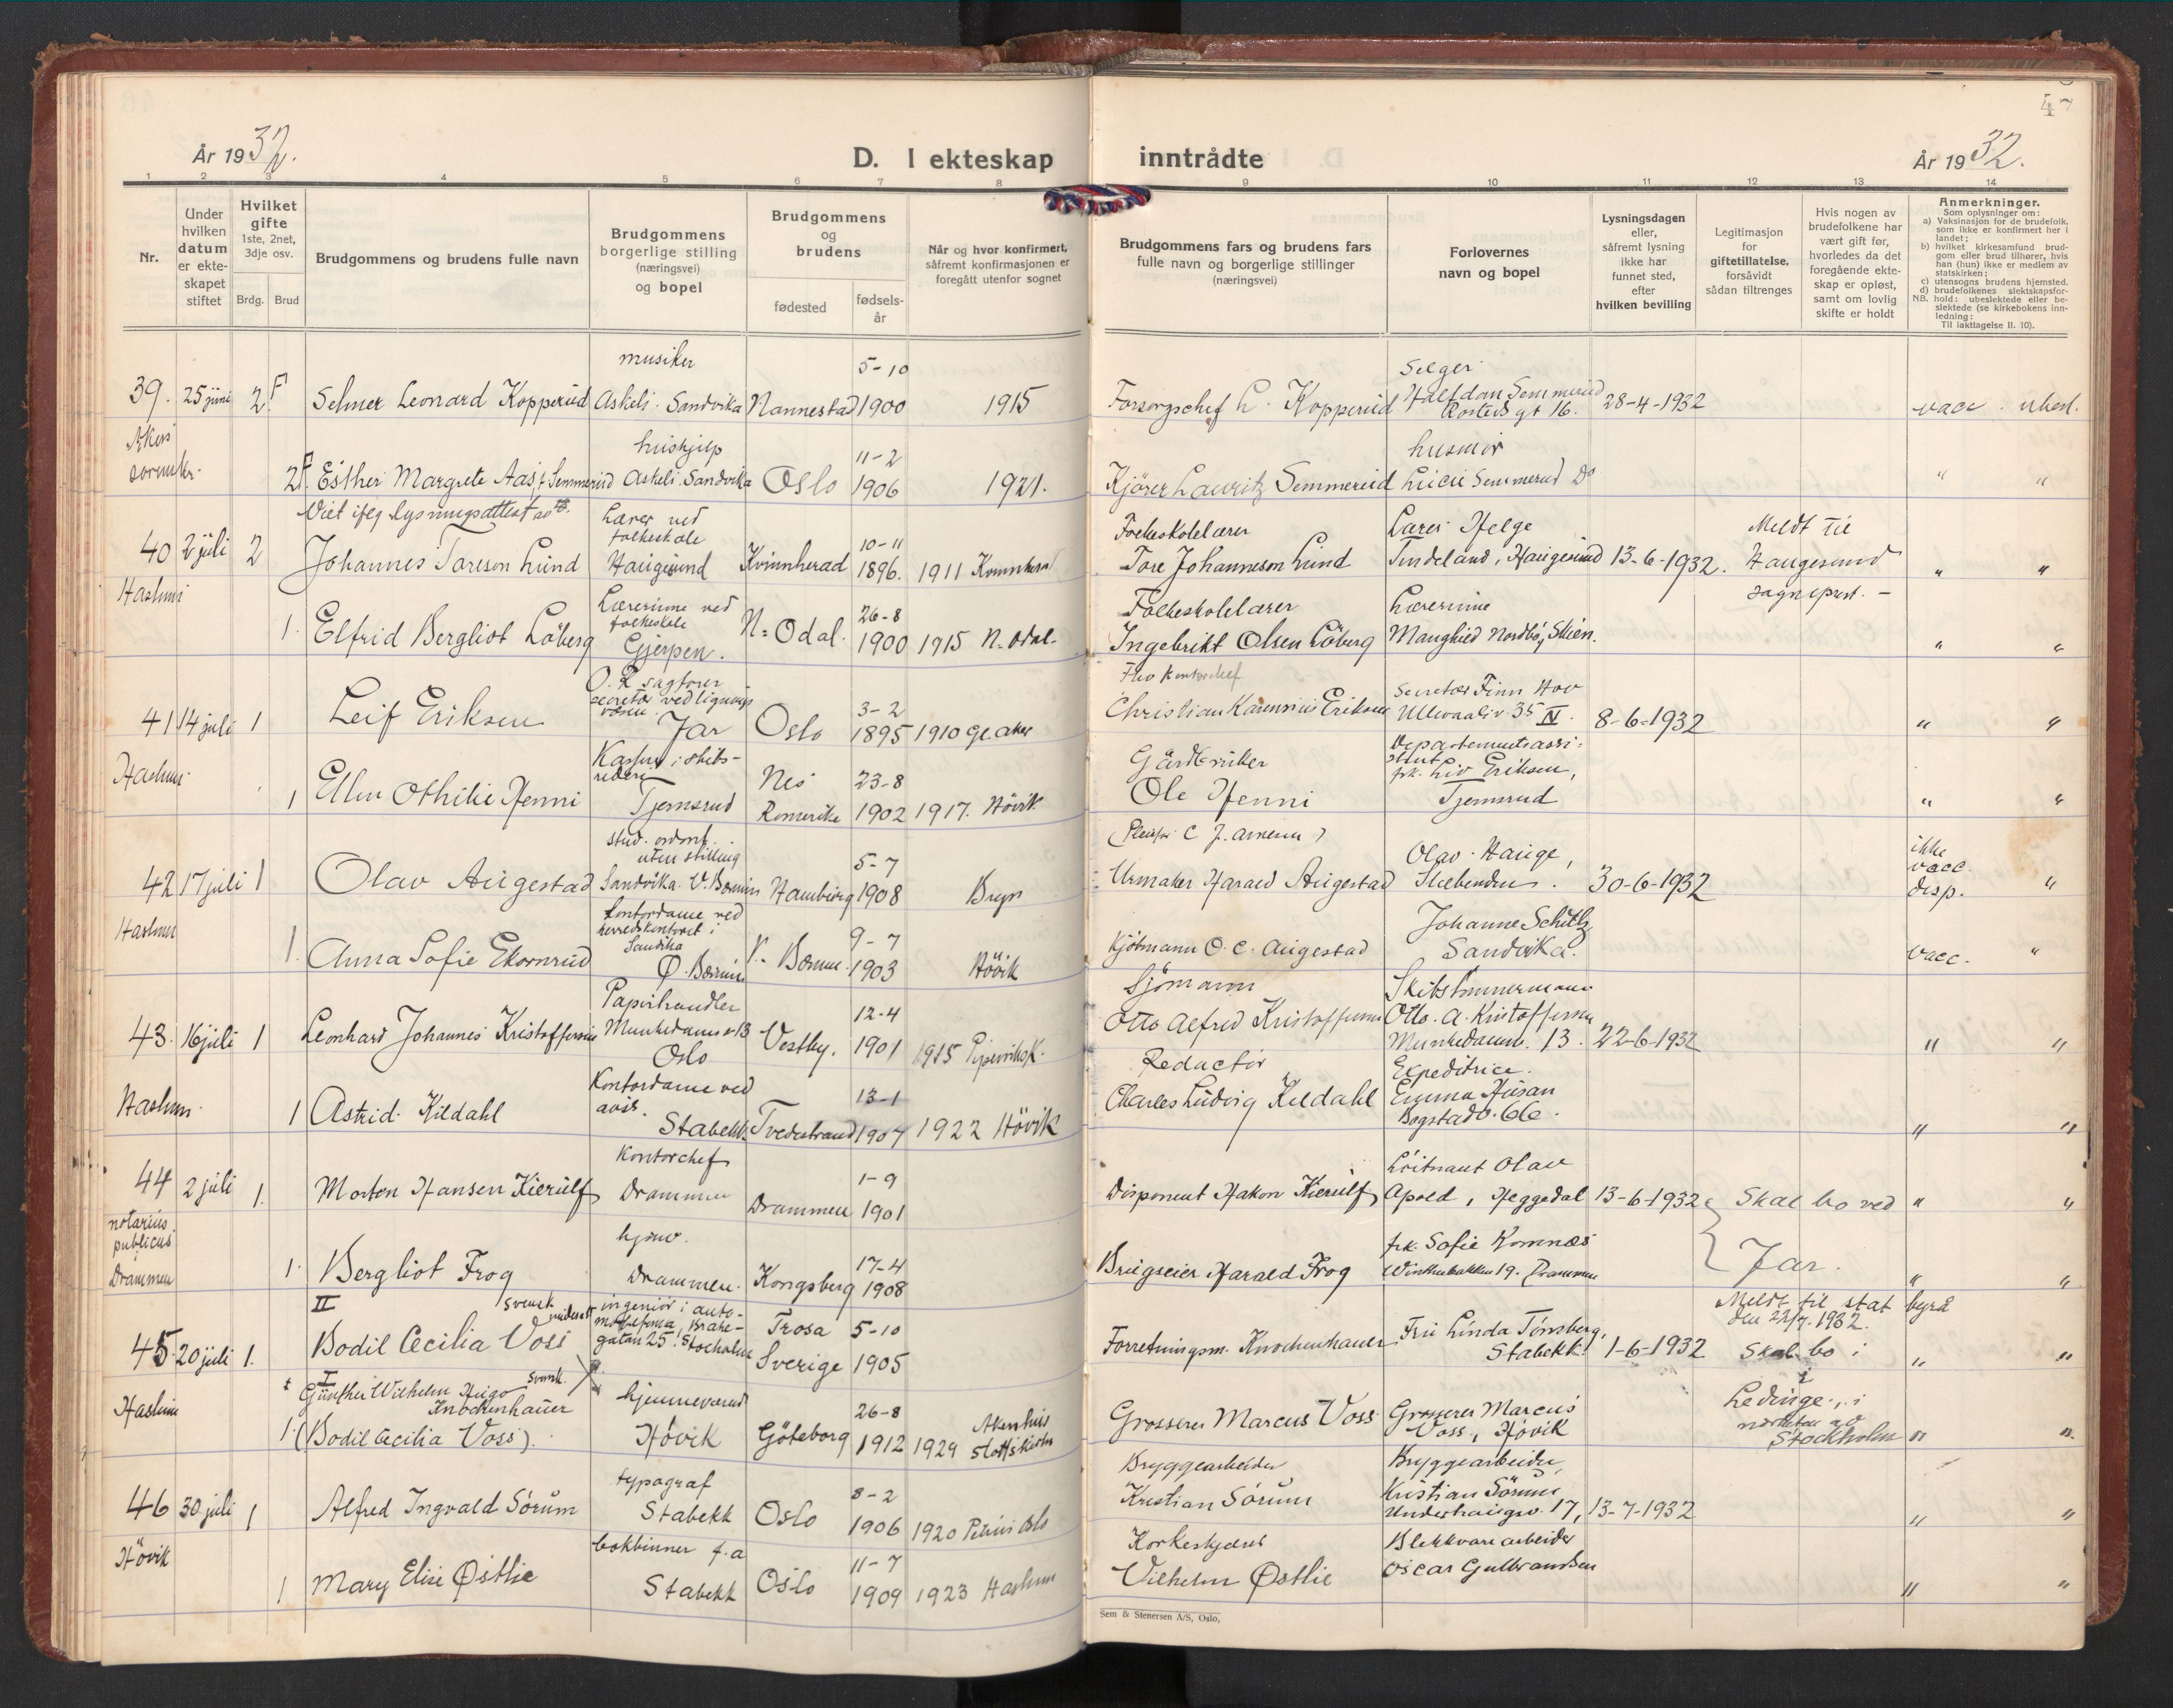 47
År 1932.
D. I ekteskap inntrådte
År 1932.
1 2 3 4 5 6 7 8 9 10 11 12 13 14
Nr.
Under hvilken datum er ekteskapet stiftet
Hvilket gifte 1ste, 2net, 3dje osv.
Brdg. Brud
Brudgommens og brudens fulle navn
Brudgommens borgerlige stilling (næringsvei) og bopel
Brudgommens og brudens
fødested
fødsels-år
Når og hvor konfirmert, såfremt konfirmasjonen er foregått utenfor sognet
Brudgommens fars og brudens fars fulle navn og borgerlige stillinger (næringsvei)
Forlovernes navn og bopel
Lysningsdagen eller, såfremt lysning ikke har funnet sted, efter hvilken bevilling
Legitimasjon for giftetillatelse, forsåvidt sådan tiltrenges
Hvis nogen av brudefolkene har vært gift før, hvorledes da det foregående ekteskap er opløst, samt om lovlig skifte er holdt
Anmerkninger.
Som oplysninger om:
a) Vaksinasjon for de brudefolk, som ikke er konfirmert her i landet;
b) hvilket kirkesamfund brudgom eller brud tilhører, hvis han (hun) ikke er medlem av statskirken;
c) utensogns brudens hjemsted.
d) brudefolkenes slektskapsforhold: ubeslektede eller beslektede (se kirkebokens innledning:
NB.
Til iakttagelse II. 10).
musiker 5-10 Selger
39. 25 juni 2F Selmer Leonard Kopperud Askeli. Sandvika Nannestad 1900 1915 Forsorgschef L. Kopperud Halfdan Semmerud Rosteds gt 16. 28-4-1932 vacc. ubesl.
Akers sorenskr. hushjelp 11-2 husmor
2F. Esther Margrete Aas, f. Semmerud Askeli. Sandvika Oslo 1906 1921. Kjörer Lauritz Semmerud Lucie Semmerud Do " "
Viet iflg lysningsattest
Lærer ved folkeskole 10-11 Folkeskolelærer Lærer Helge Meldt til
40 2 juli 2 Johannes Toreson Lund Haugesund Kvinnherad 1896. 1911 Kvinnherad Tore Johannesson Lund Tindeland, Haugesund 13-6-1932. Haugesund sogneprest. — " "
Haslum Lærerinne ved folkeskole 26-8 Folkeskolelærer Lærerinne
1. Elfrid Bergliot Löberg Gjerpen. N. Odal. 1900 1915 N. Odal. Ingebrikt Olsen Löberg Maughild Nordbö, Skien. " "
O. R. sagförer secretær ved lignings væsen 3-2 Fhv kontorchef Secretær Finn Hov
41 14 juli 1 Leif Eriksen Jar Oslo 1895 1910 Gl. aker Christian Karenius Eriksen Ullevaalsv. 35 IV. 8-6-1932 " "
Haslum Kasserer i skibsrederi Nes 23-8 Gårdbruker Departementsassistent frk. Liv Eriksen,
1 Ellen Othilie Henni Tjernsrud Romerike 1902 1917. Hövik Ole Henni Tjernsrud " "
stud. odont. uten stilling 5-7 (Pleiefar C. J. Arnesen) Olav Hauge, ikke vacc. disp.
42 17 juli 1 Olav Augestad Sandvika V. Bærum Hamburg 1908 Bryn Urmaker Harald Augestad Slæbenden. 30-6-1932 "
Haslum Kontordame ved herredskontoret i Sandvika 9-7 Johanne Schultz
1. Anna Sofie Ekornrud Ø. Bærum V. Bærum 1903 Hövik Kjöbmann O. C. Augestad Sandvika. vacc. "
Papirhandler 12-4 Sjömann Skibstömmermann
43. 16 juli 1 Leonhard Johannes Kristoffersen Munkedamsv. 13 Oslo Vestby. 1901 1915 Pipervikens K. Otto Alfred Kristoffersen Otto. A. Kristoffersen Munkedamsv. 13. 22-6-1932 " "
Haslum. Kontordame ved avis. 13-1 Redactör Expeditrice.
1 Astrid Kildahl Stabekk Tvedestrand 1907 1922 Hövik Charles Ludvig Kildahl Emma Husan Bogstadv. 66. " "
Kontorchef 1-9 Löitnant Olav
44 2 juli 1. Morten Hansen Kierulf Drammen Drammen 1901 Disponent Hakon Kierulf Apold, Heggedal 13-6-1932 Skal bo ved Jar. " "
notarius publicus i Drammen hjemv. 17-4 frk. Sofie Komnæs
1. Bergliot Frog Drammen. Kongsberg 1908 Brugseier Harald Frog Winthersbakken 19. Drammen " "
II svensk undersått ingeniör i automobilfirma, Brahegatan 25. Stockholm Trosa 5-10 Meldt til stat byrå den 22/7. 1932.
45 20 juli 1. Bodil Cecilia Voss Sverige 1905 Forretningsm. Knochenhauer Fru Linda Tönsberg, Stabekk. 1-6-1932 Skal bo i " "
Haslum I Günther Wilhelm Hugo Knochenhauer svensk. hjemmeværende 26-8 Akershus Ledinge, i nærheten av Stockholm
1. (Bodil Cecilia Voss). Hövik Göteborg 1912 1929 Slottskirke Grosserer Marcus Voss Grosserer Marcus Voss, Hövik " "
typograf 8-2 Bryggearbeider Bryggearbeider
46 30 juli 1 Alfred Ingvald Sörum Stabekk Oslo 1906 1920 Petrus Oslo Kristian Sörum Kristian Sörum Underhaugsv. 17, 13-7-1932 " "
Hövik bokbinner f.a 11-7 Korkeskjærer Blekkvarearbeider
1 Mary Elise Østlie Stabekk Oslo 1909 1923 Haslum Vilhelm Østlie Oscar Gulbrandsen " "
Sem & Stenersen A/S, Oslo.